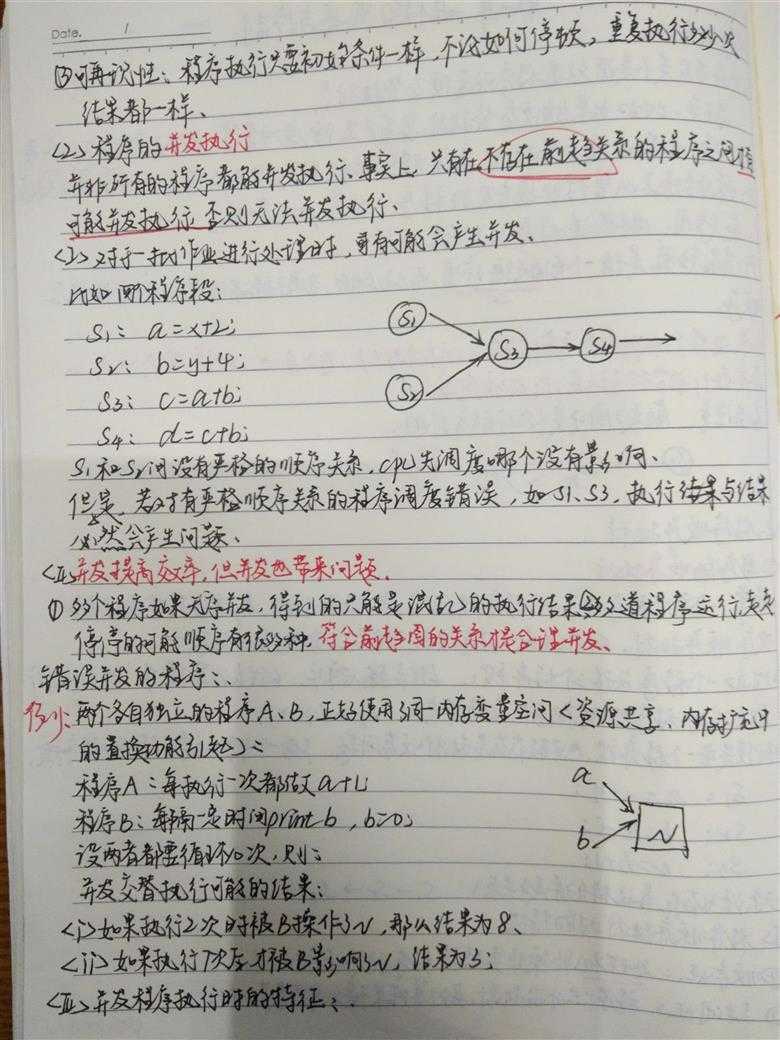 Date. 1
③可再现性：程序执行只要初始条件一样，不论如何停顿，重复执行多少次
结果都一样、
<2>程序的并发执行
并非所有的程序都能并发执行、事实上，只有在不存在前趋关系的程序之间才
可能并发执行，否则无法并发执行、
<I>对于一批作业进行处理时，更有可能会产生并发、
比如四个程序段：
S1： a=x+2；
S2： b=y+4；
S3： c=a+b；
S4： d=c+b；
S1
S2
S3
S4
S1和S2间没有严格的顺序关系，cpu先调度哪个没有影响、
但是，若对有严格顺序关系的程序调度错误，如S1、S3，执行结果与结果
必然会产生问题、
<II>并发提高效率，但并发也带来问题、
①多个程序如果无序并发，得到的只能是混乱的执行结果 多道程序运行，走走
停停的可能顺序有很多种，符合前趋图的关系才是合理并发、
错误并发的程序：、
例：两个各自独立的程序A、B，正好使用了同一内存变量空间<资源共享、内存扩充中
的置换功能引起>：
程序A：每执行一次都做N a+1；
程序B：每隔一定时间print b，b=0；
设两者都要循环10次，则：
a
b
N
并发交替执行可能的结果：
<i>如果执行2次时被B操作了N，那么结果为8、
<ii>如果执行7次后才被B影响了N，结果为3；
<III>并发程序执行时的特征：、